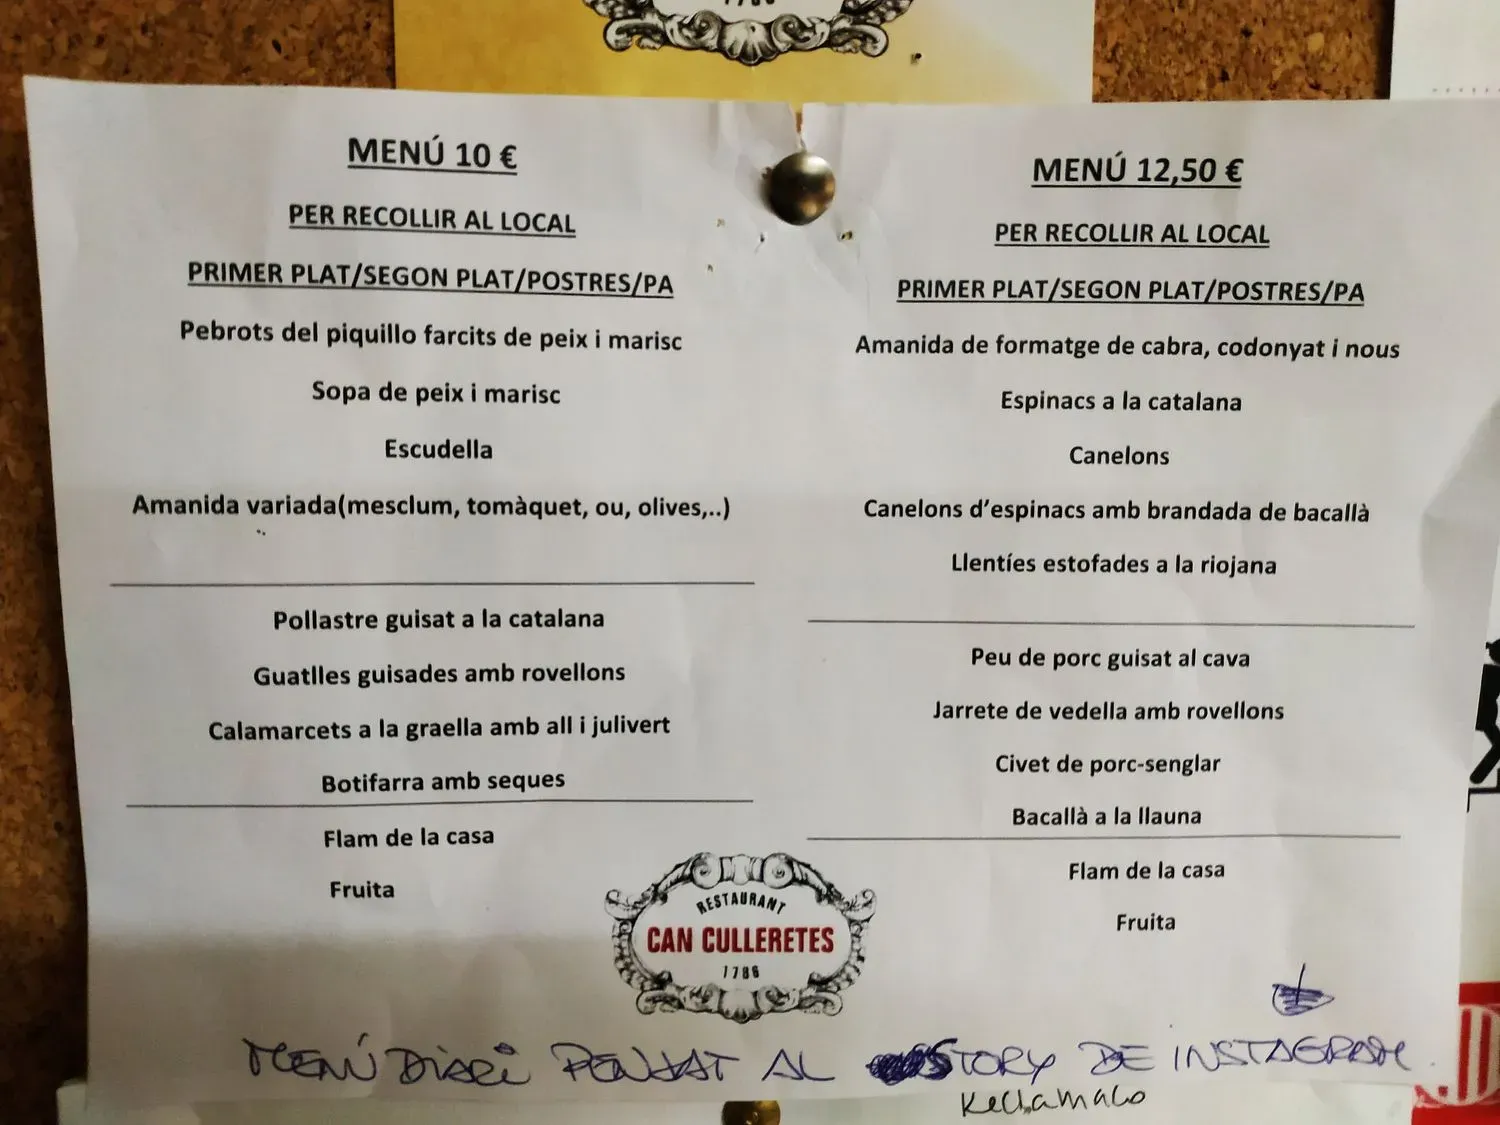 MENÚ 10 €
PER RECOLLIR AL LOCAL
PRIMER PLAT/SEGON PLAT/POSTRES/PA
Pebrots del piquillo farcits de peix i marisc
Sopa de peix i marisc
Escudella
Amanida variada(mesclum, tomàquet, ou, olives,..)
Pollastre guisat a la catalana
Guatlles guisades amb rovellons
Calamarcets a la graella amb all i julivert
Botifarra amb seques
Flam de la casa
Fruita
MENÚ 12,50 €
PER RECOLLIR AL LOCAL
PRIMER PLAT/SEGON PLAT/POSTRES/PA
Amanida de formatge de cabra, codonyat i nous
Espinacs a la catalana
Canelons
Canelons d'espinacs amb brandada de bacallà
Llentíes estofades a la riojana
Peu de porc guisat al cava
Jarrete de vedella amb rovellons
Civet de porc-senglar
Bacallà a la llauna
Flam de la casa
Fruita
RESTAURANT
CAN CULLERETES
1786
MENÚ DIARI PENJAT AL STORY DE INSTAGRAM